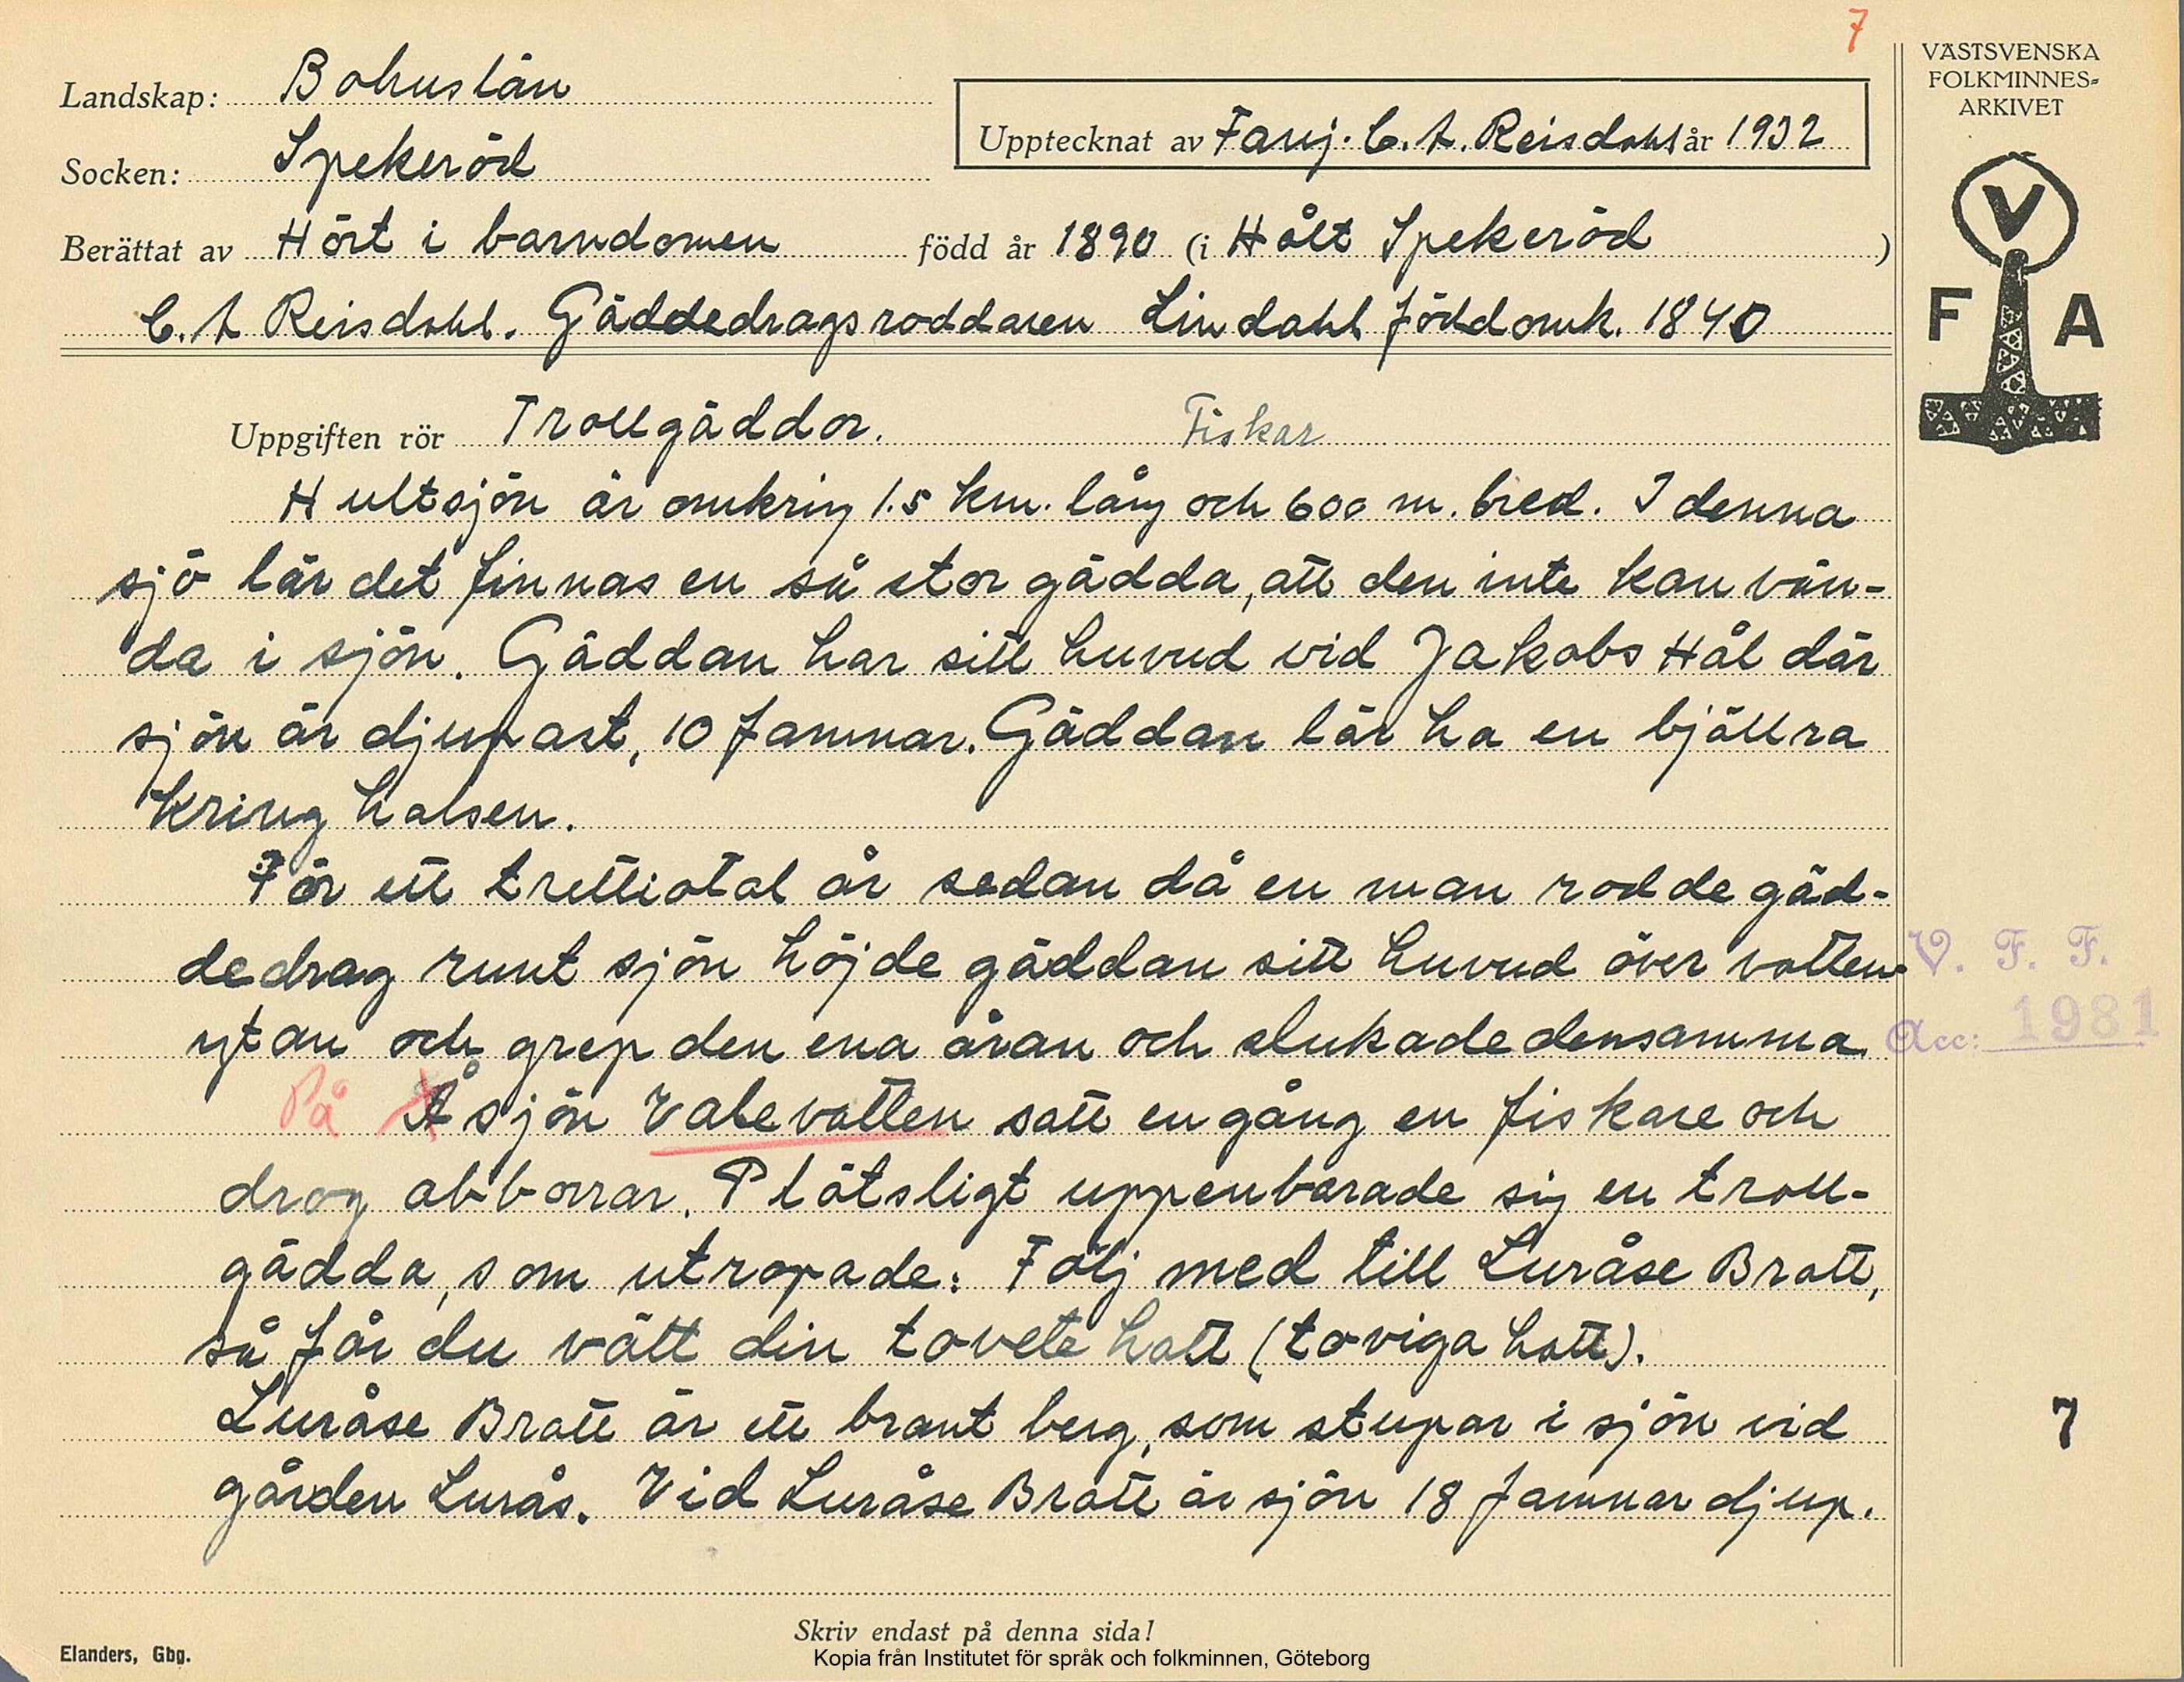 7
VÄSTSVENSKA
FOLKMINNES=
ARKIVET
Landskap: Bohuslän
Upptecknat av Fanj. C. A. Reisdahl år 1932
Socken: Spekeröd
Berättat av Hört i barndomen född år 1890 (i Hålt Spekeröd )
C. A Reisdahl. Gäddedragsroddaren Lindahl född omk. 1840
V
F A
Uppgiften rör Trollgäddor. Fiskar
Hultsjön är omkring 1.5 km. lång och 600 m. bred. I denna
sjö lär det finnas en så stor gädda, att den inte kan vän-
da i sjön. Gäddan har sitt huvud vid Jakobs Hål där
sjön är djupast, 10 famnar. Gäddan lär ha en bjällra
kring halsen.
För ett trettiotal år sedan då en man rodde gäd-
dedrag runt sjön höjde gäddan sitt huvud över vatten-
ytan och grep den ena åran och slukade densamma.
V. F. F.
Acc: 1981
På Å sjön Valevatten satt en gång en fiskare och
drog abborrar. Plötsligt uppenbarade sig en troll-
gädda, som utropade: Följ med till Luråse Bratt,
så får du vått din tovete hatt (toviga hatt).
Luråse Bratt är ett brant berg, som stupar i sjön vid
gården Lurås. Vid Luråse Bratt är sjön 18 famnar djup.
7
Skriv endast på denna sida!
Elanders, Gbg.
Kopia från Institutet för språk och folkminnen, Göteborg